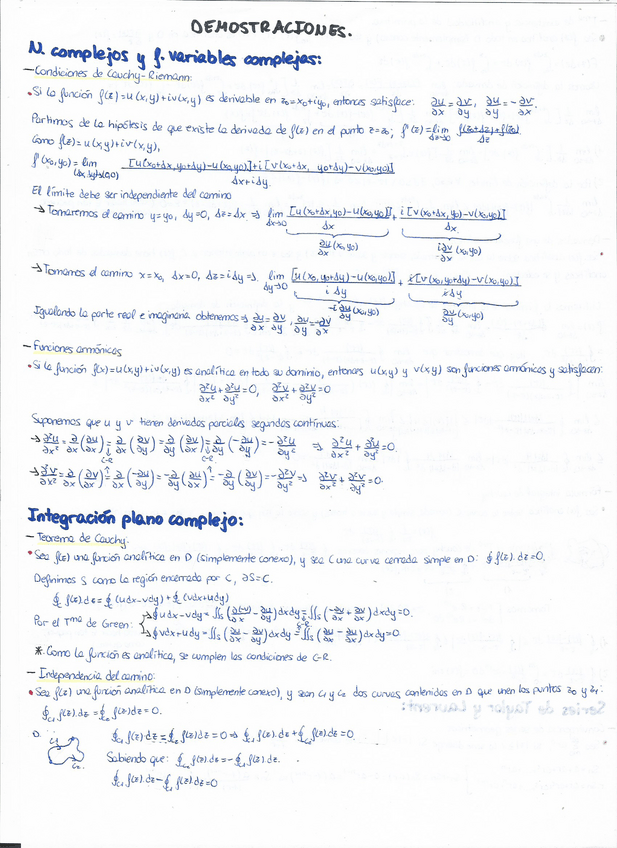 DEMOSTRACIONES.
N. complejos y f. variables complejas:
- Condiciones de Cauchy-Riemann:
• Si la función f(z)=u(x,y)+iv(x,y) es derivable en z₀=x₀+iy₀, entonces satisface: ∂u/∂x=∂v/∂y, ∂u/∂y=-∂v/∂x.
Partimos de la hipótesis de que existe la derivada de f(z) en el punto z=z₀; f'(z)=lim Δz→0 f(z₀+Δz)+f(z₀)/Δz
Como f(z)=u(x,y)+iv(x,y),
f'(x₀,y₀)=lim (Δx,Δy)→(0,0) [u(x₀+Δx,y₀+Δy)-u(x₀,y₀)]+i[v(x₀+Δx, y₀+Δy)-v(x₀,y₀)]/Δx+iΔy
El límite debe ser independiente del camino
→ Tomaremos el camino y=y₀, Δy=0, Δz=Δx ⇒ lim Δx→0 [u(x₀+Δx,y₀)-u(x₀,y₀)]/Δx + i[v(x₀+Δx,y₀)-v(x₀,y₀)]/Δx
∂u/∂x (x₀,y₀) i∂v/∂x (x₀,y₀)
→ Tomamos el camino x=x₀, Δx=0, Δz=iΔy ⇒ lim Δy→0 [u(x₀,y₀+Δy)-u(x₀,y₀)]/iΔy + i[v(x₀,y₀+Δy)-v(x₀,y₀)]/iΔy
-i∂u/∂y (x₀,y₀) ∂v/∂y (x₀,y₀)
Igualando la parte real e imaginaria obtenemos ⇒ ∂u/∂x=∂v/∂y, ∂u/∂y=-∂v/∂x
- Funciones armónicas
• Si la función f(x)=u(x,y)+iv(x,y) es analítica en todo su dominio, entonces u(x,y) y v(x,y) son funciones armónicas y satisfacen:
∂²u/∂x²+∂²u/∂y²=0, ∂²v/∂x²+∂²v/∂y²=0
Suponemos que u y v tienen derivadas parciales segundas contínuas:
→ ∂²u/∂x²=∂/∂x(∂u/∂x)=∂/∂x(∂v/∂y)=∂/∂y(∂v/∂x)=∂/∂y(-∂u/∂y)=-∂²u/∂y² ⇒ ∂²u/∂x²+∂²u/∂y²=0.
C-R C-R
→ ∂²v/∂x²=∂/∂x(∂v/∂x)=∂/∂x(-∂u/∂y)=-∂/∂y(∂u/∂x)=-∂/∂y(∂v/∂y)=-∂²v/∂y² ⇒ ∂²v/∂x²+∂²v/∂y²=0.
Integración plano complejo:
- Teorema de Cauchy:
• Sea f(z) una función analítica en D (simplemente conexo), y sea C una curva cerrada simple en D: ∮f(z).dz=0.
Definimos S como la región encerrada por C, ∂S=C.
∮c f(z).dz=∮c (udx-vdy)+∮c (vdx+udy)
Por el Tma de Green: → ∮udx-vdy=∬s(∂(-v)/∂x-∂u/∂y)dxdy=∬s(-∂v/∂x+∂v/∂x)dxdy=0.
C-R
→ ∮vdx+udy=∬s(∂u/∂x-∂v/∂y)dxdy=∬s(∂u/∂x-∂u/∂x)dxdy=0
* Como la función es analítica, se cumplen las condiciones de C-R.
- Independencia del camino:
• Sea f(z) una función analítica en D (simplemente conexo), y sean C₁ y C₂ dos curvas contenidas en D que unen los puntos z₀ y z₁:
∮c₁ f(z).dz=∮c₂ f(z)dz=0.
D. C₁ C₂ ∮c₁ f(z).dz=∮c₂ f(z)dz=0 ⇒ ∮c₁ f(z).dz+∮c₂ f(z).dz=0
Sabiendo que: ∮c₂ f(z).dz=-∮c₁ f(z).dz.
∮c₁ f(z).dz-∮c₁ f(z)dz=0